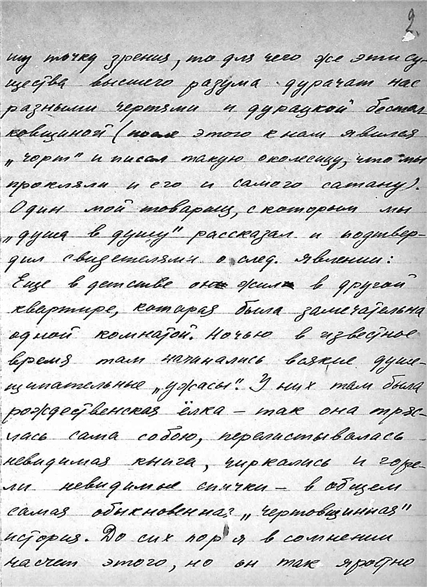 2
шу точку зрения, то для чего же эти су-
щества высшего разума дурачат нас
разными чертями и дурацкой бестол
ковщиной (после этого к нам явился
„чорт" и писал такую околесицу, что мы
прокляли и его и самого сатану).
Один мой товарищ, с которым мы
„душа в душу" рассказал и подтвер-
дил свидетелями о след. явлении:
Еще в детстве он жил в другой
квартире, которая была замечательна
одной комнатой. Ночью в известное
время там начинались всякие душе-
щипательные „ужасы". У них там была
рождественская ёлка – так она тряс-
лась сама собою, перелистывалась
невидимая книга, чиркались и горе-
ли невидимые спички – в общем
самая обыкновенная „чертовщинная"
история. До сих пор я в сомнении
насчет этого, но он так яростно